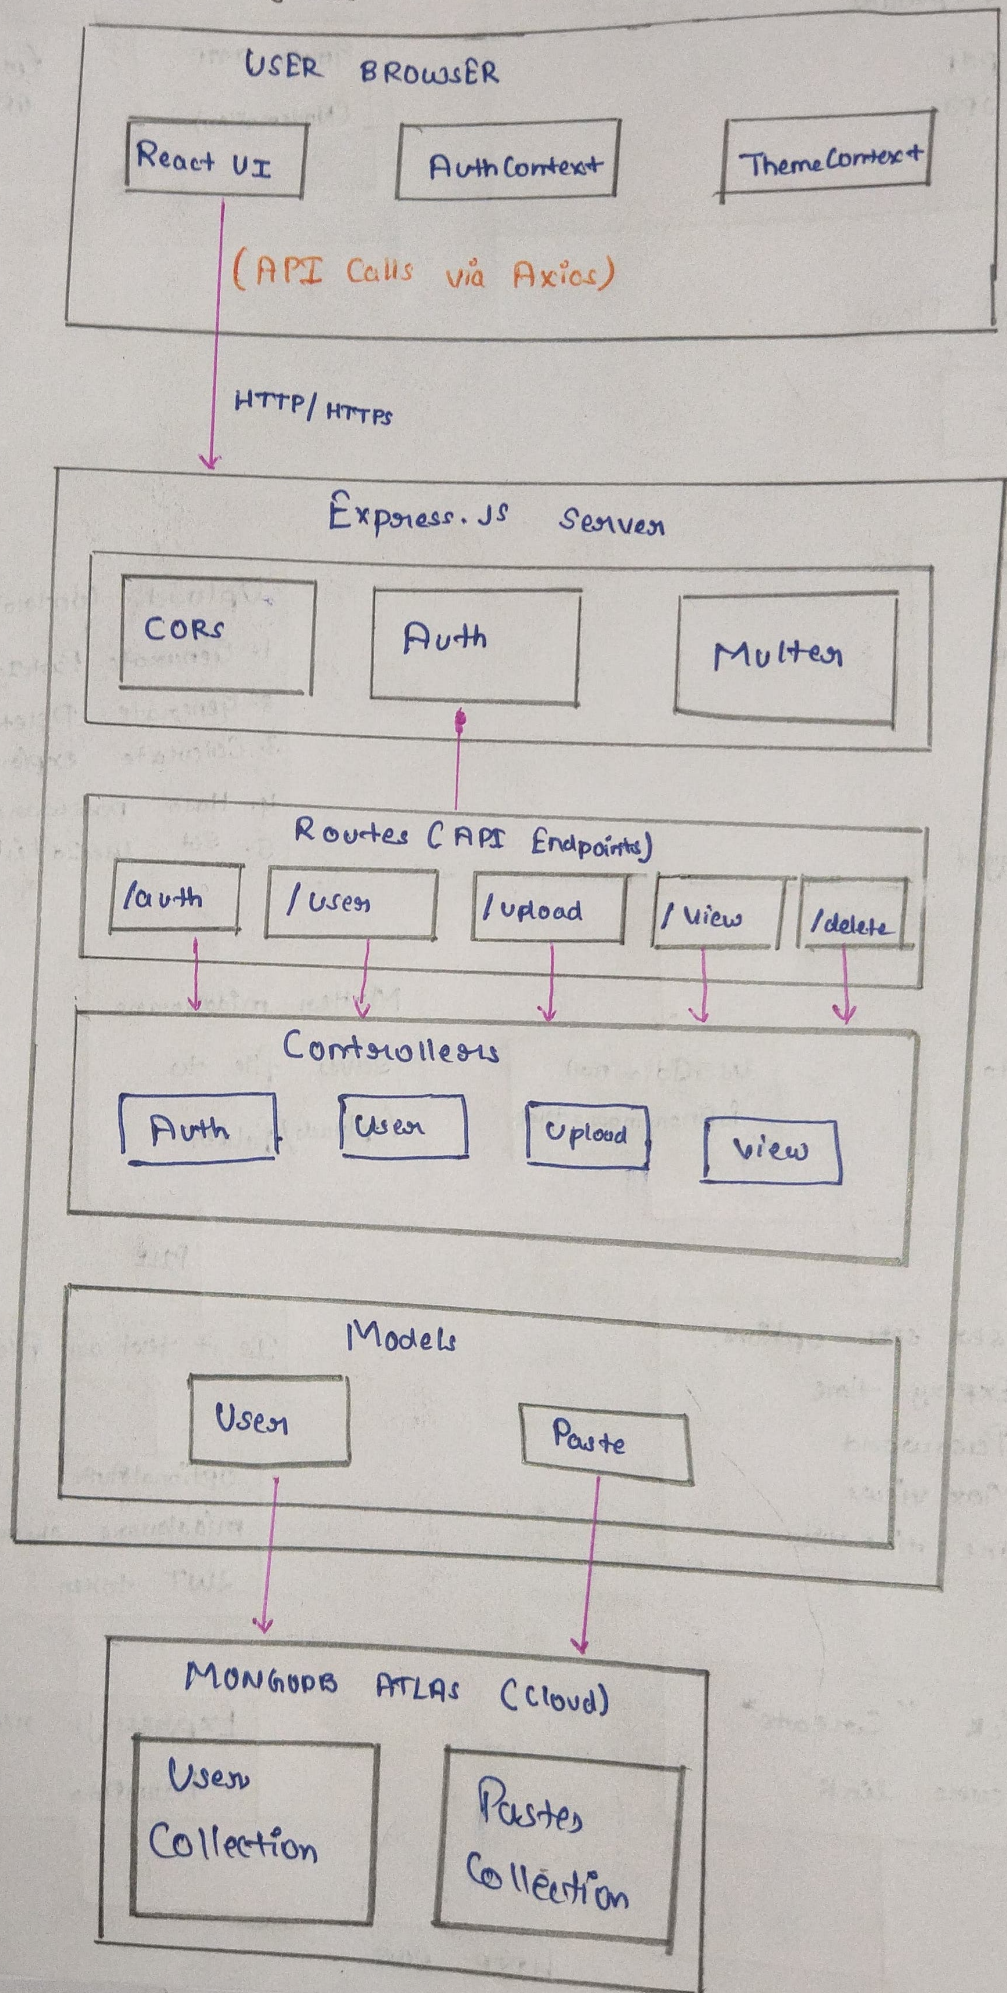 USER BROWSER
React UI
AuthContext
ThemeContext
(API Calls via Axios)
HTTP/HTTPS
Express.JS Server
CORS
Auth
Multer
Routes (API Endpoints)
/auth
/user
/upload
/view
/delete
Controllers
Auth
User
Upload
View
Models
User
Paste
MONGODB ATLAS (Cloud)
User
Collection
Pastes
Collection